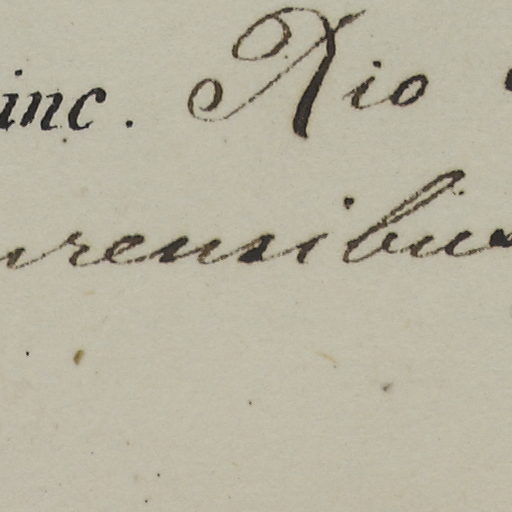 inc. Rio
rensibus